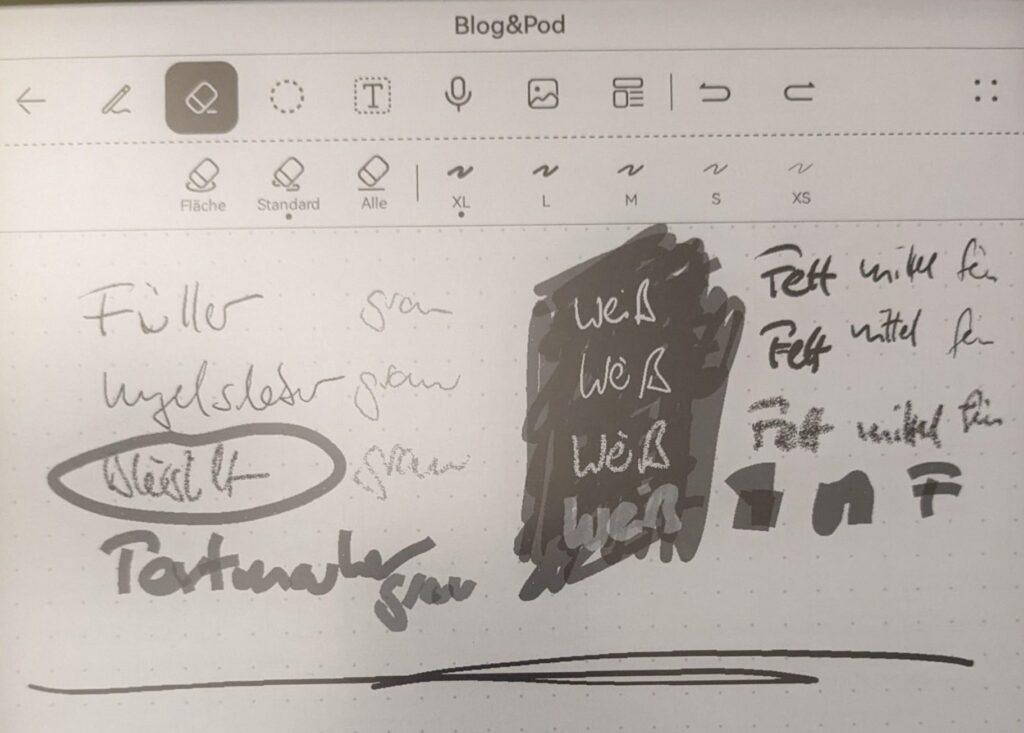 Blog&Pod
Fläche Standard Alle XL L M S XS
Füller grau weiß Fett mittel fein
Kugelschreiber grau weiß Fett mittel fein
Bleistift grau Weiß Fett mittel fein
Textmarker grau weiß